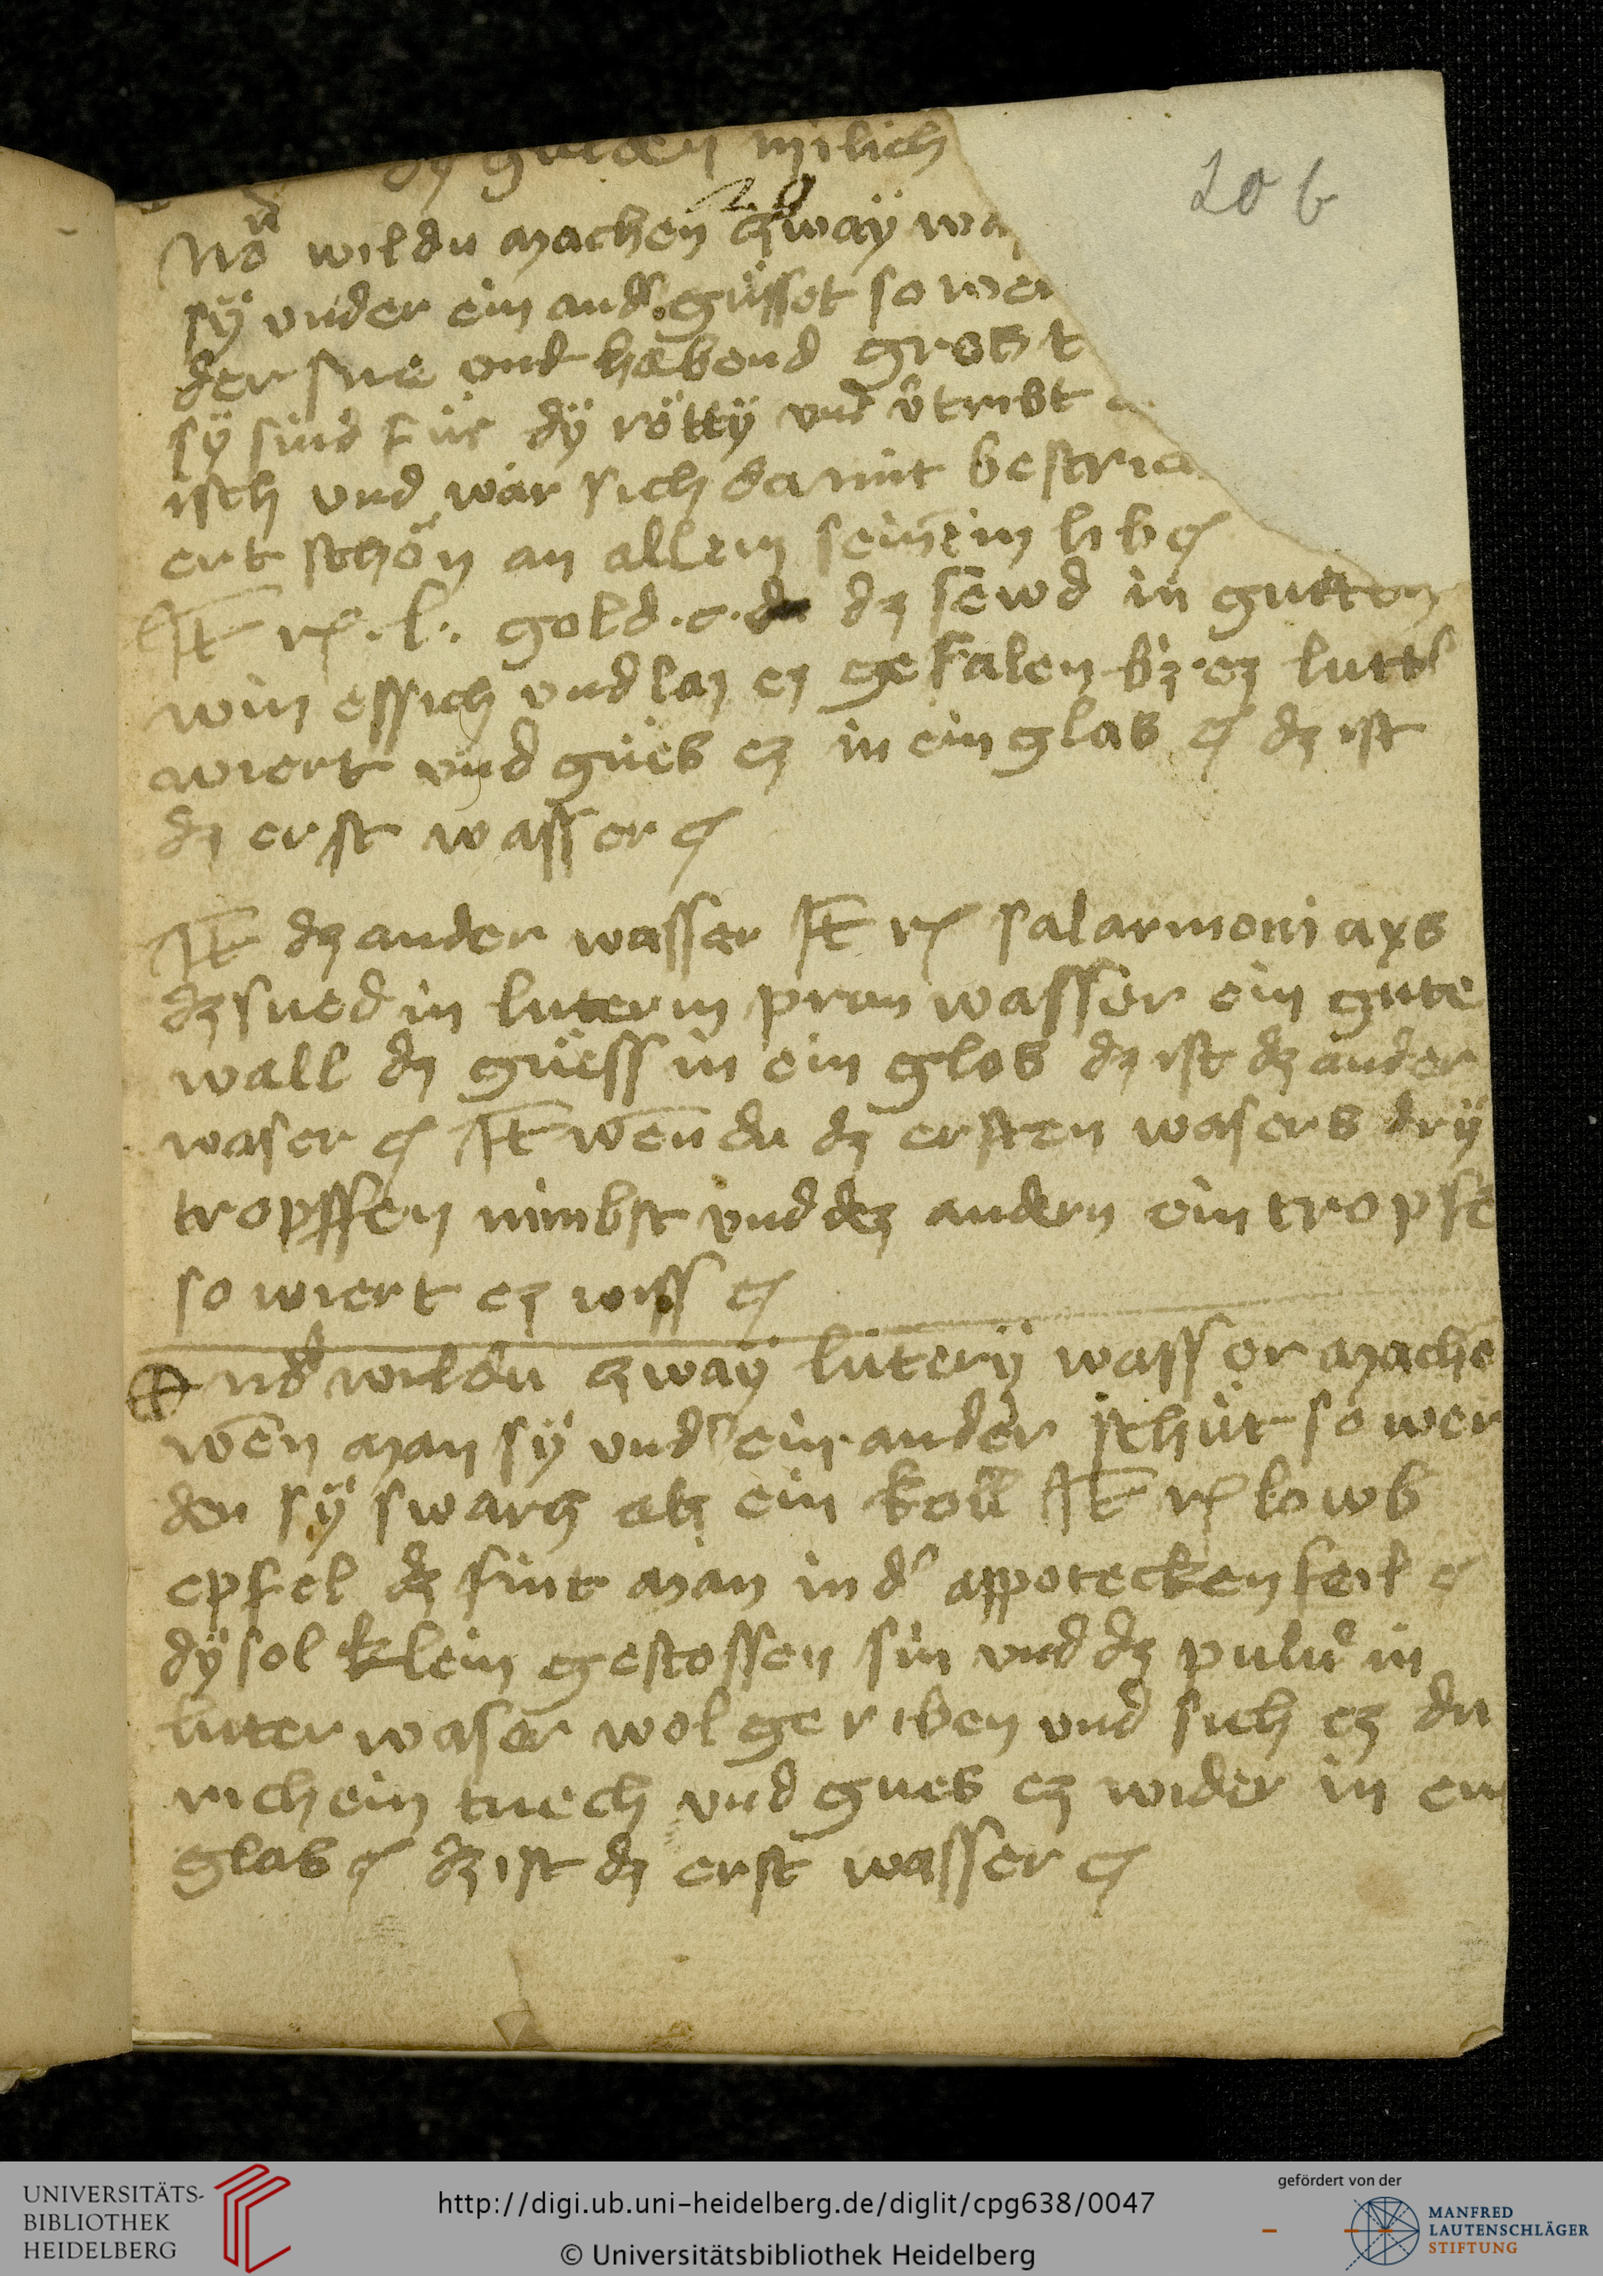 dy gulden milich
20 b
20
Nů wildu machen zway wa
sy̋ vnder ein and' gu̎sset so wer
der sne vnd habend gross t
sy̋ sind fúr dy̋ rötty̋ vnd v̂tribt
isch vnd wár sich damit bestric
ert schőn an allem seinem lib
It rp . l . gold . c . dz sewd in gutten
win essich vnd laz ez gefalen biz ez lutt'
wiert vnd gűes ez in ein glas dz ist
dz erst wasser
It dz ander wasser It rp salarmoniaxs
dz sued in luterm prun wasser ein gute
wall dz gűess in ein glos dz ist dz ander
waser It wen̄ du dz ersten wasers dry̋
tropffen nimbst vnd dez andern ein tropfe
so wiert ez wiss
nd' wildu zway̋ lűtery̋ wasser mache
wēn man sy̋ vnd' ein ander schűt so wer
den sy̋ swarz alz ein koll It rp lowb
epfel dz fint man in d' appotecken feil
dy̋ sol klein gestossen sin vnd dz pulu' in
luter waser wol geriben vnd sich ez du
rich ein tuech vnd gues ez wider in ein
glas dz ist dz erst wasser
UNIVERSITÄTS-
BIBLIOTHEK
HEIDELBERG
http://digi.ub.uni-heidelberg.de/diglit/cpg638/0047
© Universitätsbibliothek Heidelberg
gefördert von der
MANFRED
LAUTENSCHLÄGER
STIFTUNG